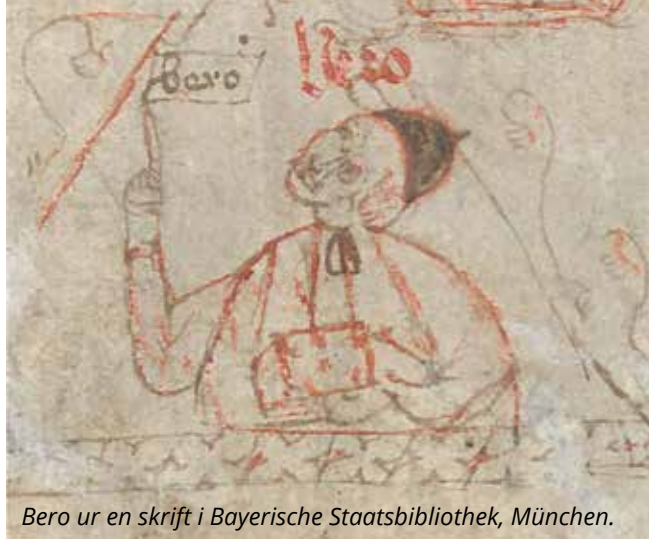 bero
Bero ur en skrift i Bayerische Staatsbibliothek, München.